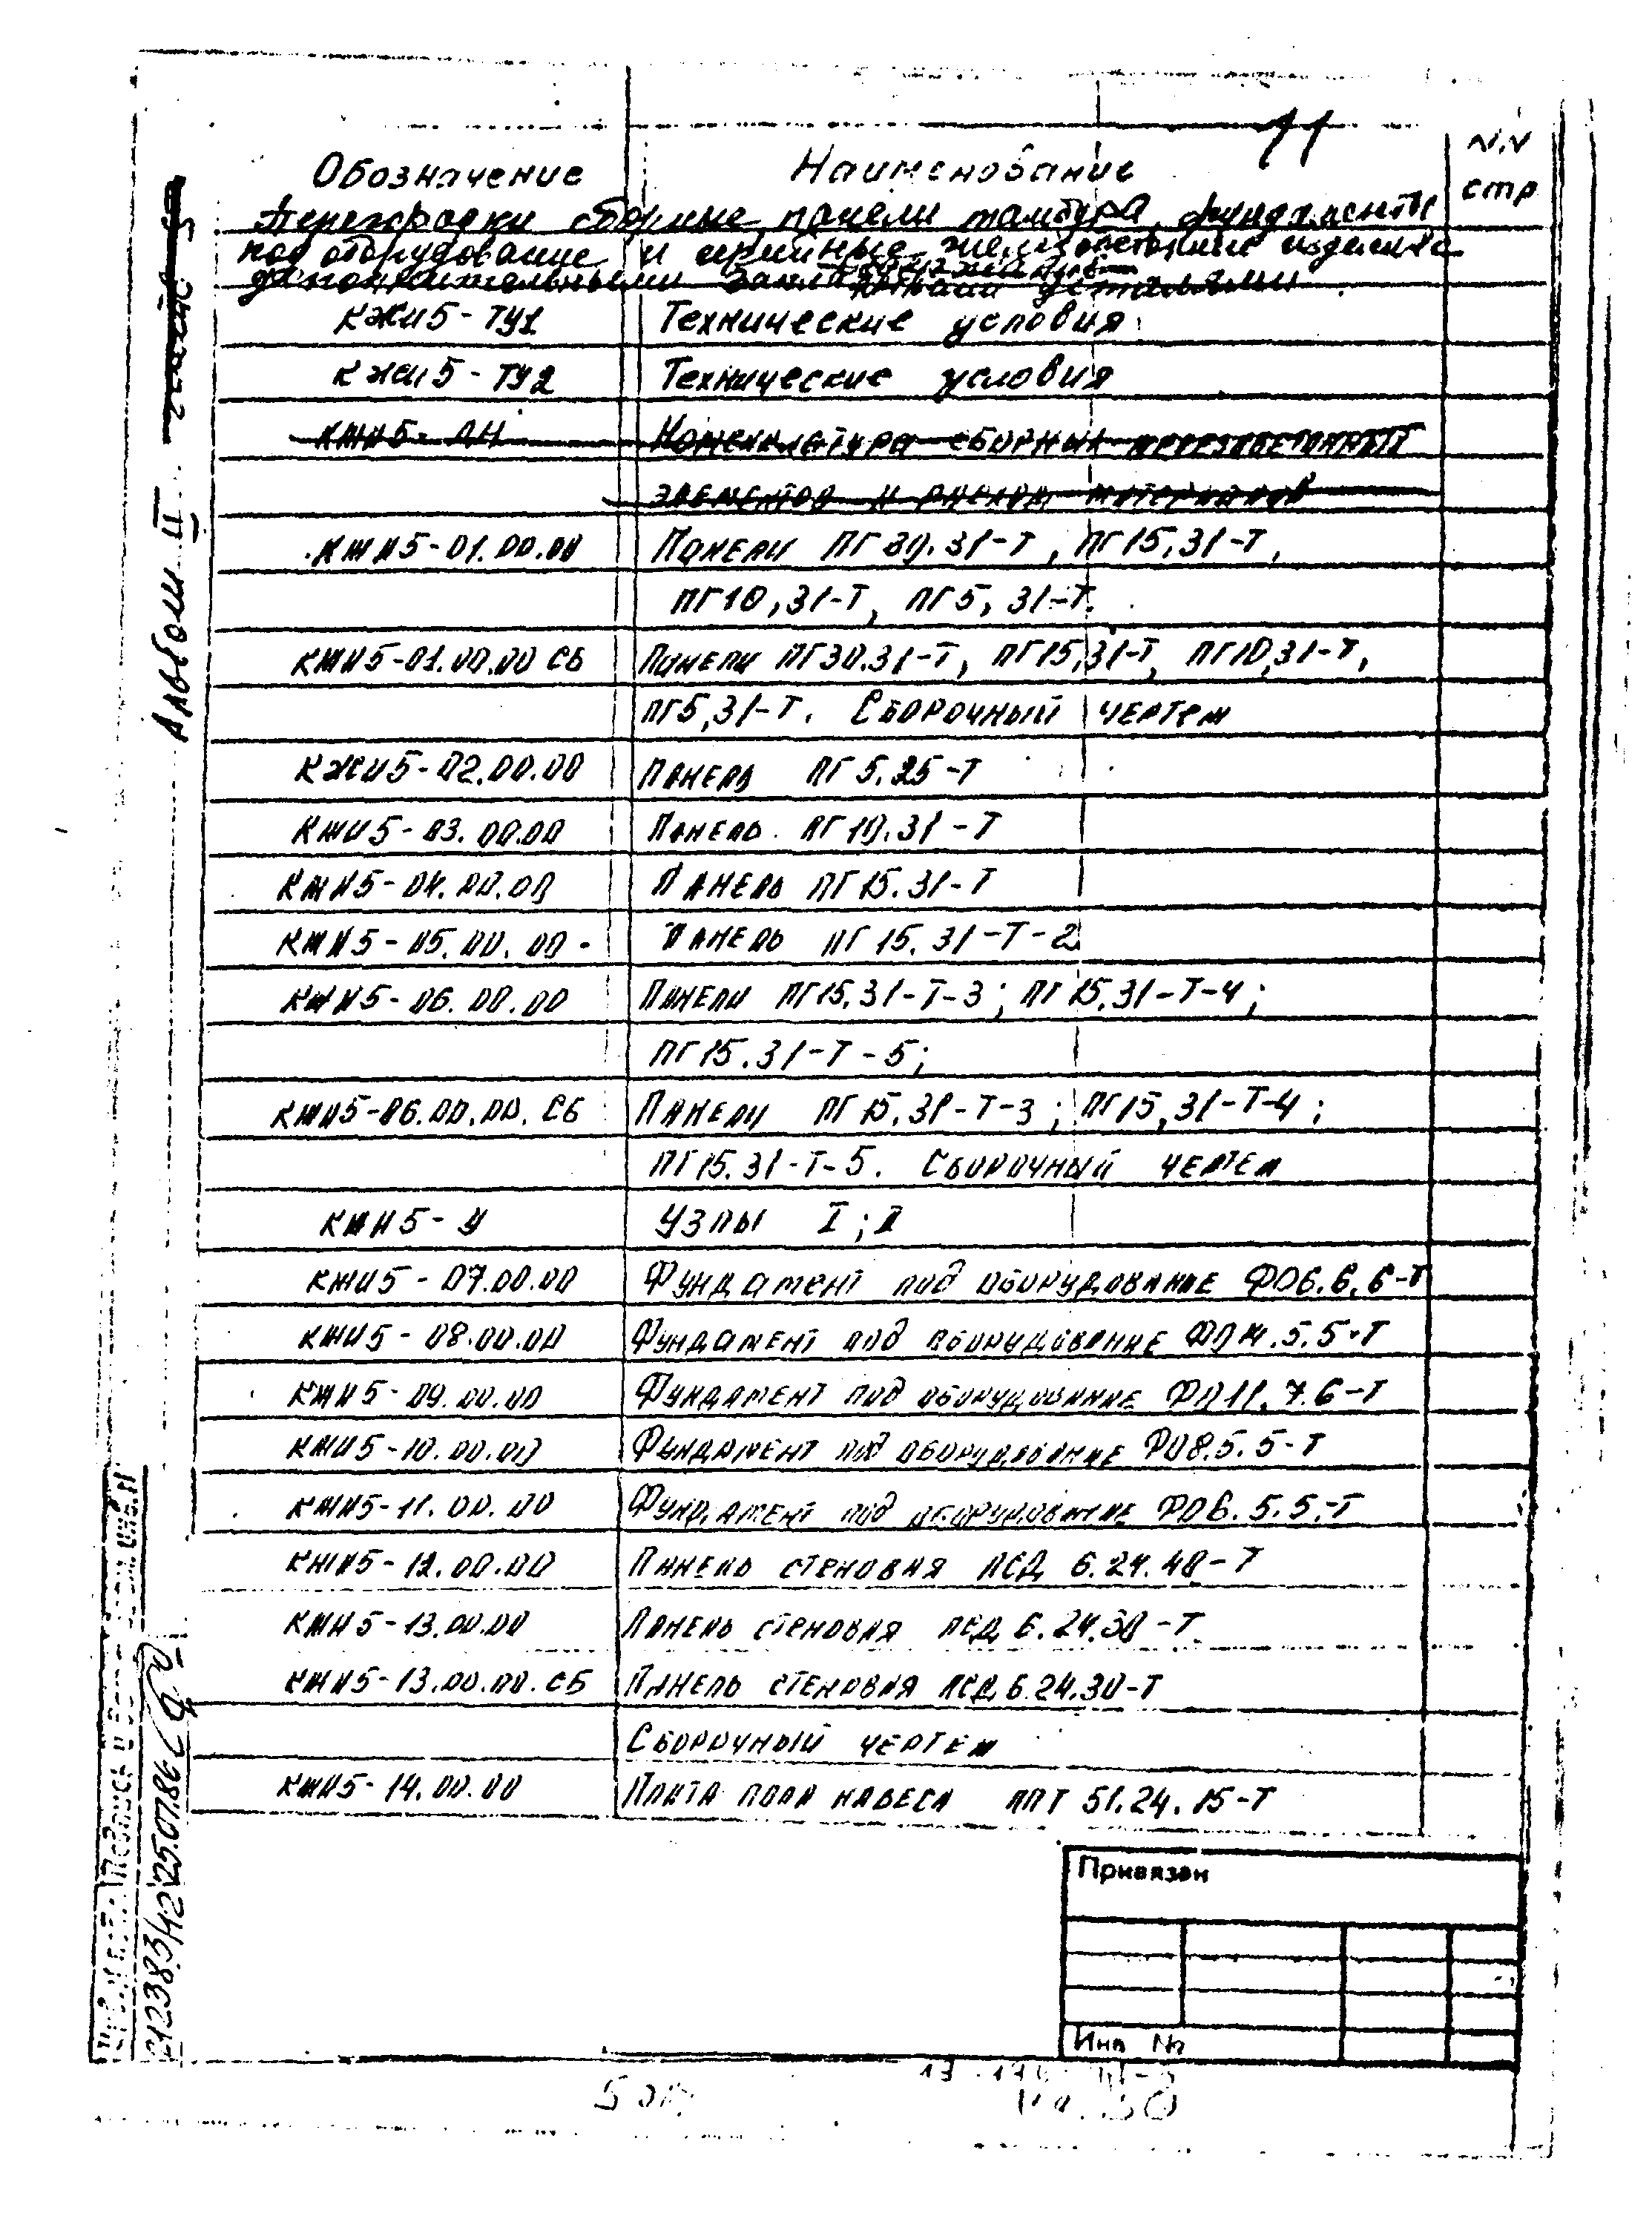 11
Обозначение Наименование NN стр
Перегородки сборные, панели тамбура, фундаменты
под оборудование и серийные железобетонные изделия с
дополнительными закладными деталями
КЖИ5-ТУ1 Технические условия
КЖИ5-ТУ2 Технические условия
КЖИ5- Номенклатура сборных железобетонных
элементов и расход материалов
КЖИ5-01.00.00 Панели ПГ30.31-Т, ПГ15.31-Т,
ПГ10,31-Т, ПГ5,31-Т.
КЖИ5-01.00.00 СБ Панели ПГ30.31-Т, ПГ15,31-Т, ПГ10,31-Т,
ПГ5,31-Т. Сборочный чертеж
КЖИ5-02.00.00 Панель ПГ5.25-Т
КЖИ5-03.00.00 Панель ПГ10.31-Т
КЖИ5-04.00.00 Панель ПГ15.31-Т
КЖИ5-05.00.00- Панель ПГ15.31-Т-2
КЖИ5-06.00.00 Панели ПГ15.31-Т-3; ПГ15.31-Т-4;
ПГ15.31-Т-5;
КЖИ5-06.00.00.СБ Панели ПГ15.31-Т-3; ПГ15,31-Т-4;
ПГ15.31-Т-5. Сборочный чертеж
КЖИ5-У Узлы I; II
КЖИ5-07.00.00 Фундамент под оборудование ФО6.6.6-Т
КЖИ5-08.00.00 Фундамент под оборудование .5.5-Т
КЖИ5-09.00.00 Фундамент под оборудование ФО11.7.6-Т
КЖИ5-10.00.00 Фундамент под оборудование ФО8.5.5-Т
КЖИ5-11.00.00 Фундамент под оборудование ФО6.5.5-Т
КЖИ5-12.00.00 Панель стеновая ПСД 6.24.40-Т
КЖИ5-13.00.00 Панель стеновая ПСД 6.24.30-Т
КЖИ5-13.00.00.СБ Панель стеновая ПСД 6.24.30-Т
Сборочный чертеж
КЖИ5-14.00.00 Плита пола навеса ППТ 51.24.15-Т
Альбом II
Подпись и
25.07.86
Привязан
Инв №